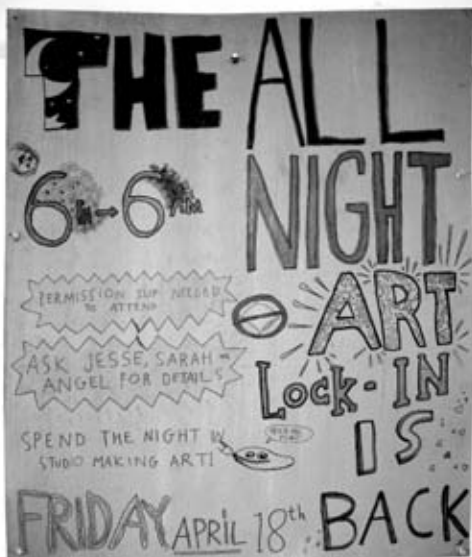 THE ALL
NIGHT
ART
Lock-IN
IS
BACK
6PM → 6AM
PERMISSION SLIP NEEDED
TO ATTEND
ASK JESSE, SARAH or
ANGEL FOR DETAILS
SPEND THE NIGHT IN
STUDIO MAKING ART!
FRIDAY APRIL 18th